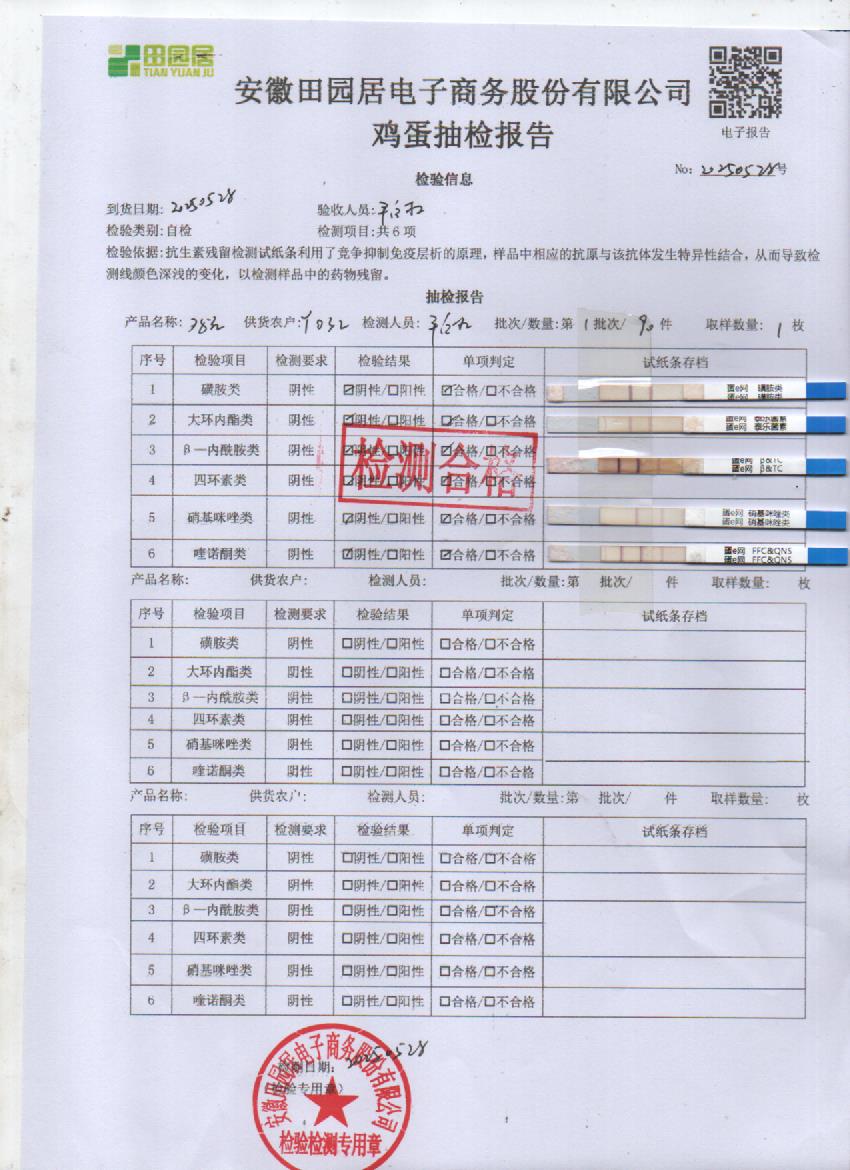 田园居
TIAN YUAN JU
安徽田园居电子商务股份有限公司
鸡蛋抽检报告
电子报告
No: 20250528号
检验信息
到货日期: 20250528 验收人员:
检验类别:自检 检测项目:共6项
检验依据:抗生素残留检测试纸条利用了竞争抑制免疫层析的原理，样品中相应的抗原与该抗体发生特异性结合，从而导致检
测线颜色深浅的变化，以检测样品中的药物残留。
抽检报告
产品名称: 供货农户: 检测人员: 批次/数量:第 1 批次/ 90 件 取样数量: 1 枚
序号 检验项目 检测要求 检验结果 单项判定 试纸条存档
1 磺胺类 阴性 ☑阴性/☐阳性 ☑合格/☐不合格 圈e网 磺胺类
圈e网 磺胺类
2 大环内酯类 阴性 ☑阴性/☐阳性 ☑合格/☐不合格 圈e网 泰乐菌素
圈e网 泰乐菌素
3 β—内酰胺类 阴性 ☑阴性/☐阳性 ☑合格/☐不合格 圈e网 β&TC
圈e网 β&TC
检测合格
4 四环素类 阴性 ☑阴性/☐阳性 ☑合格/☐不合格
5 硝基咪唑类 阴性 ☑阴性/☐阳性 ☑合格/☐不合格 圈e网 硝基咪唑类
圈e网 硝基咪唑类
6 喹诺酮类 阴性 ☑阴性/☐阳性 ☑合格/☐不合格 圈e网 FFC&QNS
圈e网 FFC&QNS
产品名称: 供货农户: 检测人员: 批次/数量:第 批次/ 件 取样数量: 枚
序号 检验项目 检测要求 检验结果 单项判定 试纸条存档
1 磺胺类 阴性 ☐阴性/☐阳性 ☐合格/☐不合格
2 大环内酯类 阴性 ☐阴性/☐阳性 ☐合格/☐不合格
3 β—内酰胺类 阴性 ☐阴性/☐阳性 ☐合格/☐不合格
4 四环素类 阴性 ☐阴性/☐阳性 ☐合格/☐不合格
5 硝基咪唑类 阴性 ☐阴性/☐阳性 ☐合格/☐不合格
6 喹诺酮类 阴性 ☐阴性/☐阳性 ☐合格/☐不合格
产品名称: 供货农户: 检测人员: 批次/数量:第 批次/ 件 取样数量: 枚
序号 检验项目 检测要求 检验结果 单项判定 试纸条存档
1 磺胺类 阴性 ☐阴性/☐阳性 ☐合格/☐不合格
2 大环内酯类 阴性 ☐阴性/☐阳性 ☐合格/☐不合格
3 β—内酰胺类 阴性 ☐阴性/☐阳性 ☐合格/☐不合格
4 四环素类 阴性 ☐阴性/☐阳性 ☐合格/☐不合格
5 硝基咪唑类 阴性 ☐阴性/☐阳性 ☐合格/☐不合格
6 喹诺酮类 阴性 ☐阴性/☐阳性 ☐合格/☐不合格
检测日期: 20250528
(检验专用章)
安徽田园居电子商务股份有限公司
检验检测专用章